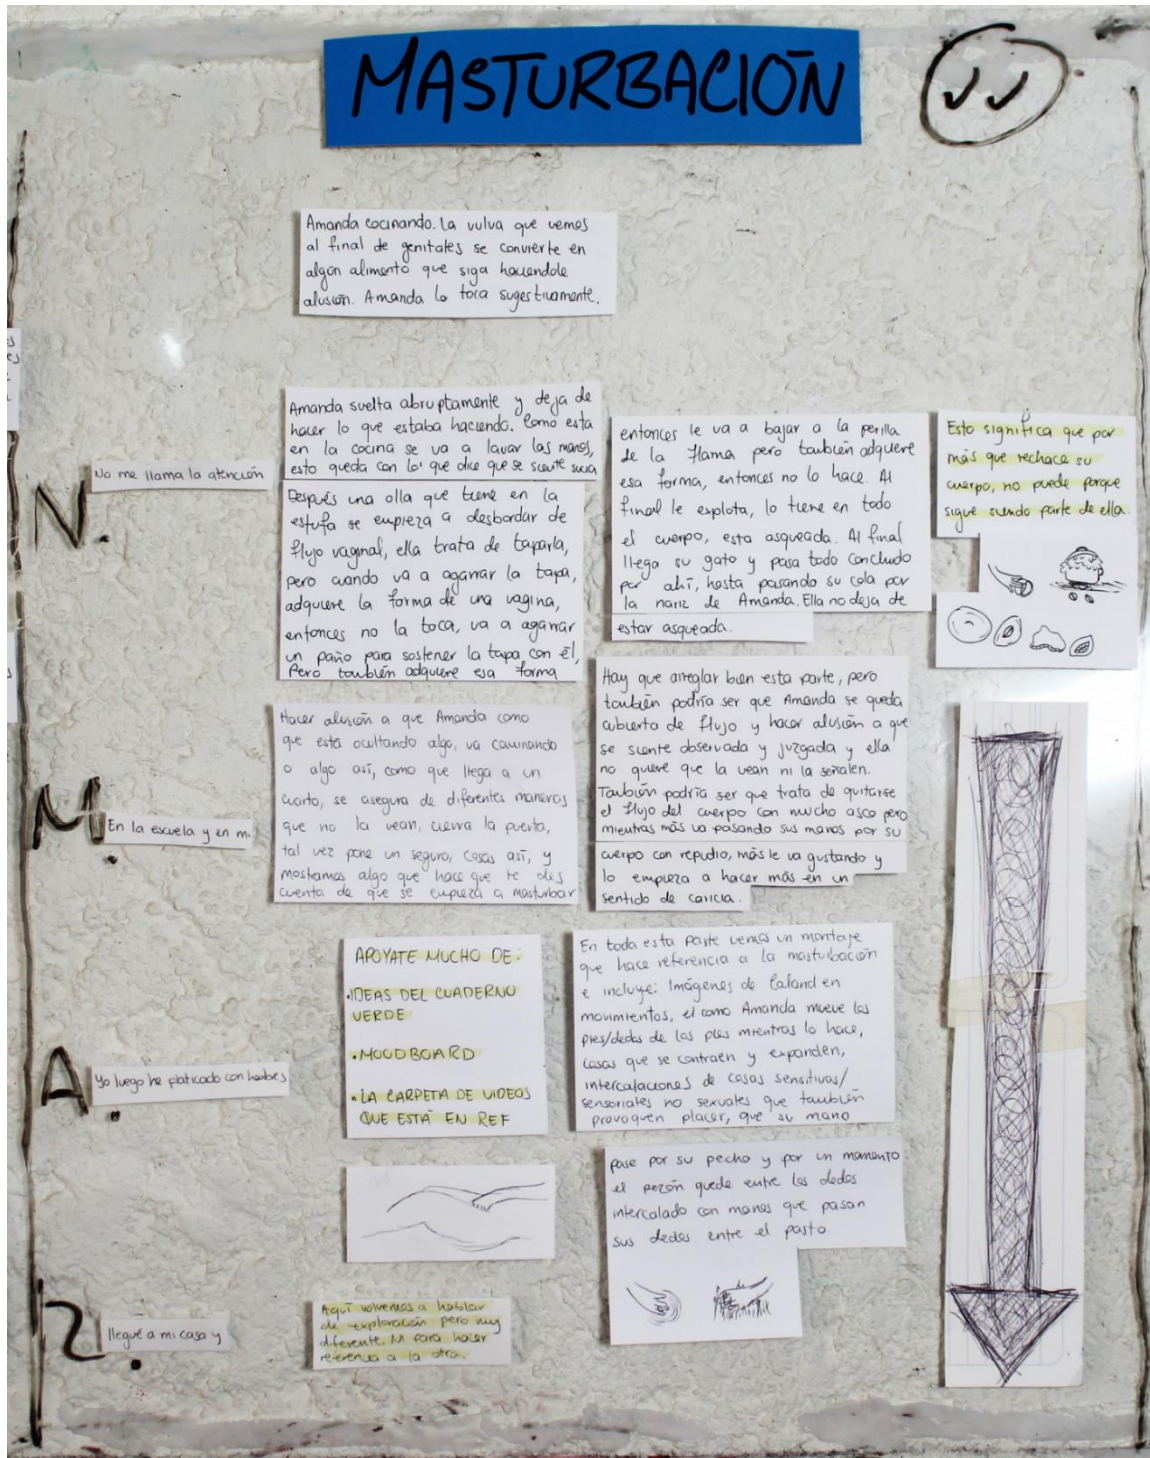 MASTURBACIÓN
Amanda cocinando. La vulva que vemos
al final de genitales se convierte en
algún alimento que siga haciendole
alusión. Amanda lo toca sugestivamente.
N.
No me llama la atención
Amanda suelta abruptamente y deja de
hacer lo que estaba haciendo. Como esta
en la cocina se va a lavar las manos,
esto queda con lo que dice que se siente sucia
Después una olla que tiene en la
estufa se empieza a desbordar de
flujo vaginal, ella trata de taparla,
pero cuando va a agarrar la tapa,
adquiere la forma de una vagina,
entonces no la toca, va a agarrar
un paño para sostener la tapa con él,
Pero también adquiere esa forma
entonces le va a bajar a la perilla
de la flama pero también adquiere
esa forma, entonces no lo hace. Al
final le explota, lo tiene en todo
el cuerpo, esta asqueada. Al final
llega su gato y pasa todo
por ahí, hasta pasando su cola por
la nariz de Amanda. Ella no deja de
estar asqueada.
Esto significa que por
más que rechace su
cuerpo, no puede porque
sigue siendo parte de ella.
M.
En la escuela y en mi
Hacer alusión a que Amanda como
que está ocultando algo, va caminando
o algo así, como que llega a un
cuarto, se asegura de diferentes maneras
que no la vean, cierra la puerta,
tal vez pone un seguro, cosas así, y
mostramos algo que hace que te des
cuenta de que se empieza a masturbar
Hay que arreglar bien esta parte, pero
también podría ser que Amanda se queda
cubierta de flujo y hacer alusión a que
se siente observada y juzgada y ella
no quiere que la vean ni la señalen.
También podría ser que trata de quitarse
el flujo del cuerpo con mucho asco pero
mientras más va pasando sus manos por su
cuerpo con repudio, más le va gustando y
lo empieza a hacer más en un
sentido de caricia.
A.
Yo luego he platicado con hombres
APOYATE MUCHO DE:
•IDEAS DEL CUADERNO
VERDE
•MOODBOARD
•LA CARPETA DE VIDEOS
QUE ESTÁ EN REF
En toda esta parte vemos un montaje
que hace referencia a la masturbación
e incluye: Imágenes de Caland en
movimientos, el como Amanda mueve los
pies/dedos de los pies mientras lo hace,
cosas que se contraen y expanden,
intercalaciones de cosas sensitivas/
sensoriales no sexuales que también
provoquen placer, que su mano
pase por su pecho y por un momento
el pezón quede entre los dedos
intercalado con manos que pasan
sus dedos entre el pasto.
llegué a mi casa y
Aquí volvemos a hablar
de exploración pero muy
diferente. Ni para hacer
referencia a la otra.